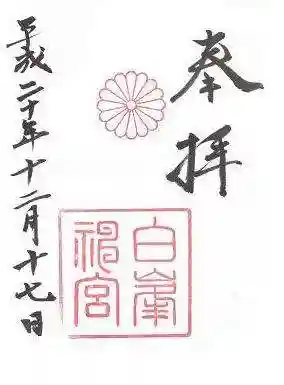 奉拝
白峯神宮
平成二十年十二月十七日